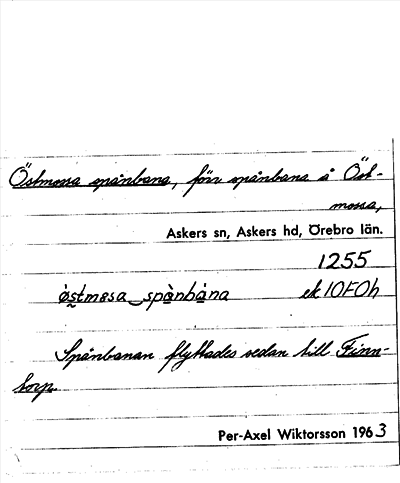 Östmossa spånbana, förr spånbana å Öst-
mossa,
Askers sn, Askers hd, Örebro län.
1255
spànbàna ek 10F0h
Spånbanan flyttades sedan till Finn-
torp.
Per-Axel Wiktorsson 1963